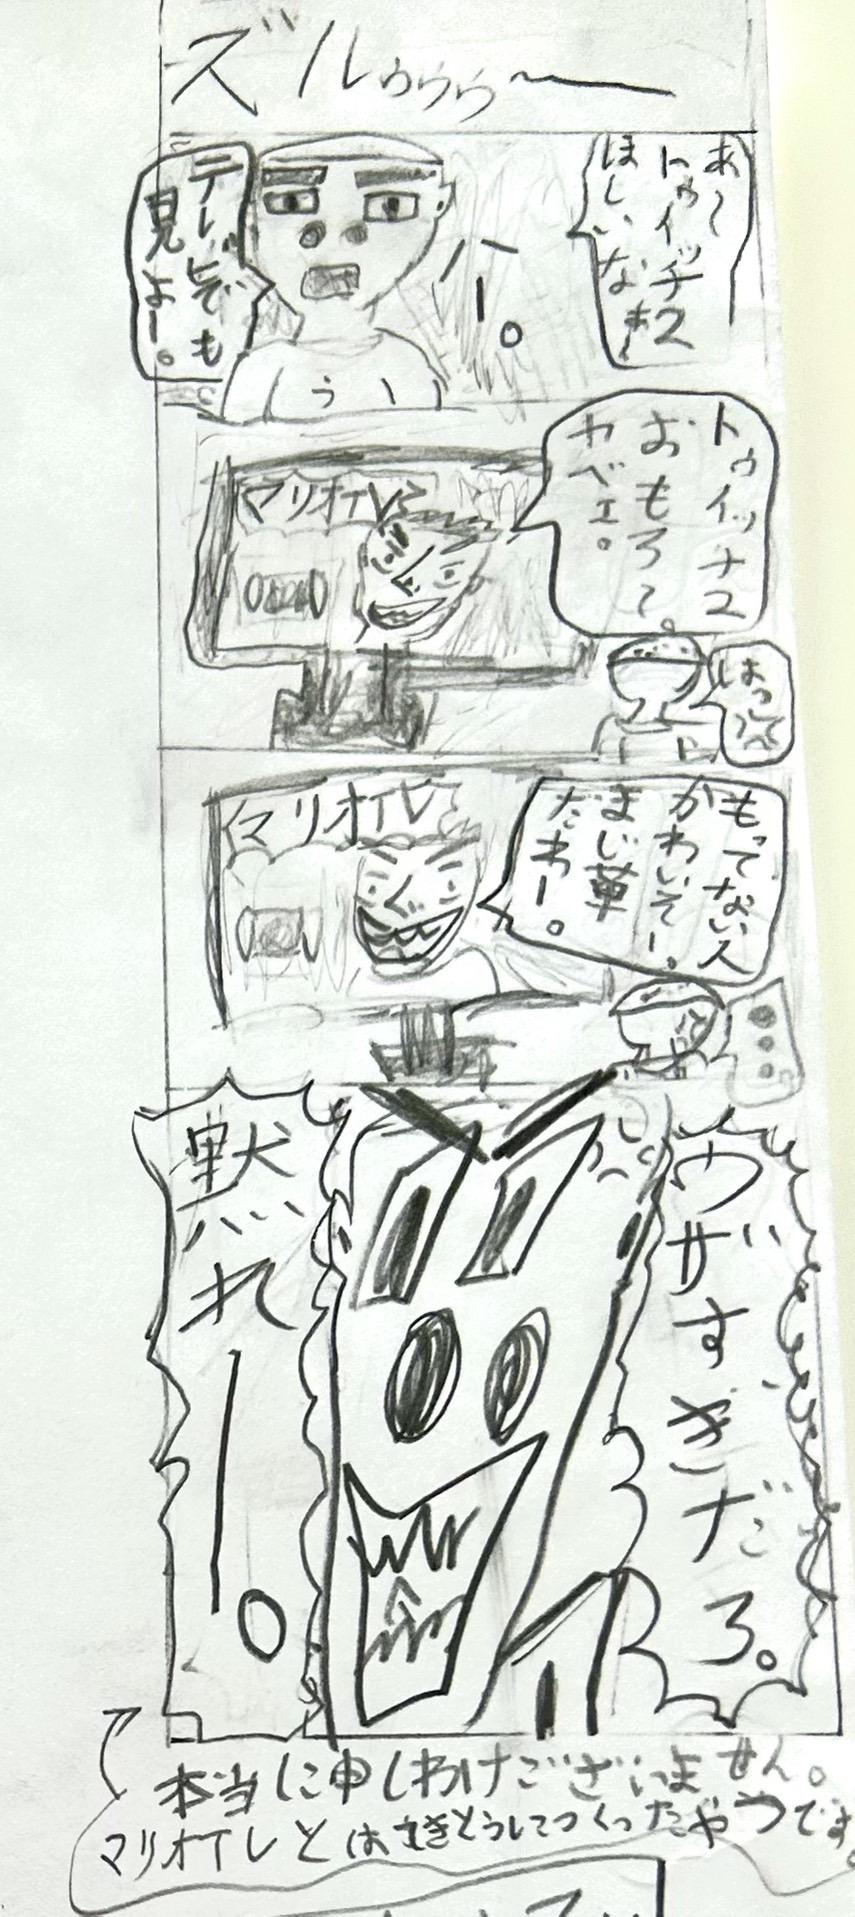 ズルゥゥゥ〜
あ〜
トゥイッチ2
ほしいなぁ
ハー。
テレビでも
見よー。
う
トゥイッチ2
おもろて。
ヤベェ。
マリオTV
はって
もってない人
かわいそー。
まじ草
だわー。
マリオTV
ウザすぎだろ。
黙れー。
本当に申しわけございません。
マリオTVとはてきとうにつくったやつです。